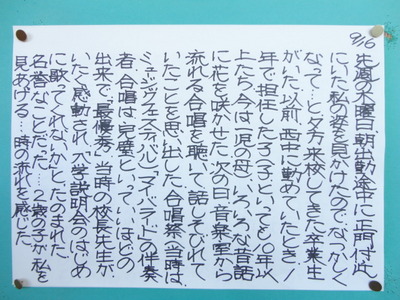 9/16
先週の木曜日、朝出勤途中に正門付近
にいた私の姿を見かけたので、なつかしく
なって…と夕方来校してきた卒業生
がいた。以前、西中に勤めていたとき、1
年で担任した子。子といっても10年以
上たち、今は一児の母。いろいろな昔話
に花を咲かせた。次の日、音楽室から
流れる合唱を聴いて、話しそびれて
いたことを思い出した。合唱祭(当時は
ミュージックフェスティバル)「マイバラード」の伴奏
者。合唱は完璧といっていいほどの
出来で「最優秀」。当時の校長先生が
いたく感動され、入学説明会のはじめ
に歌ってくれないかと、たのまれた。
名誉なことだった…。2歳の子が私を
見あげる…時の流れを感じた。